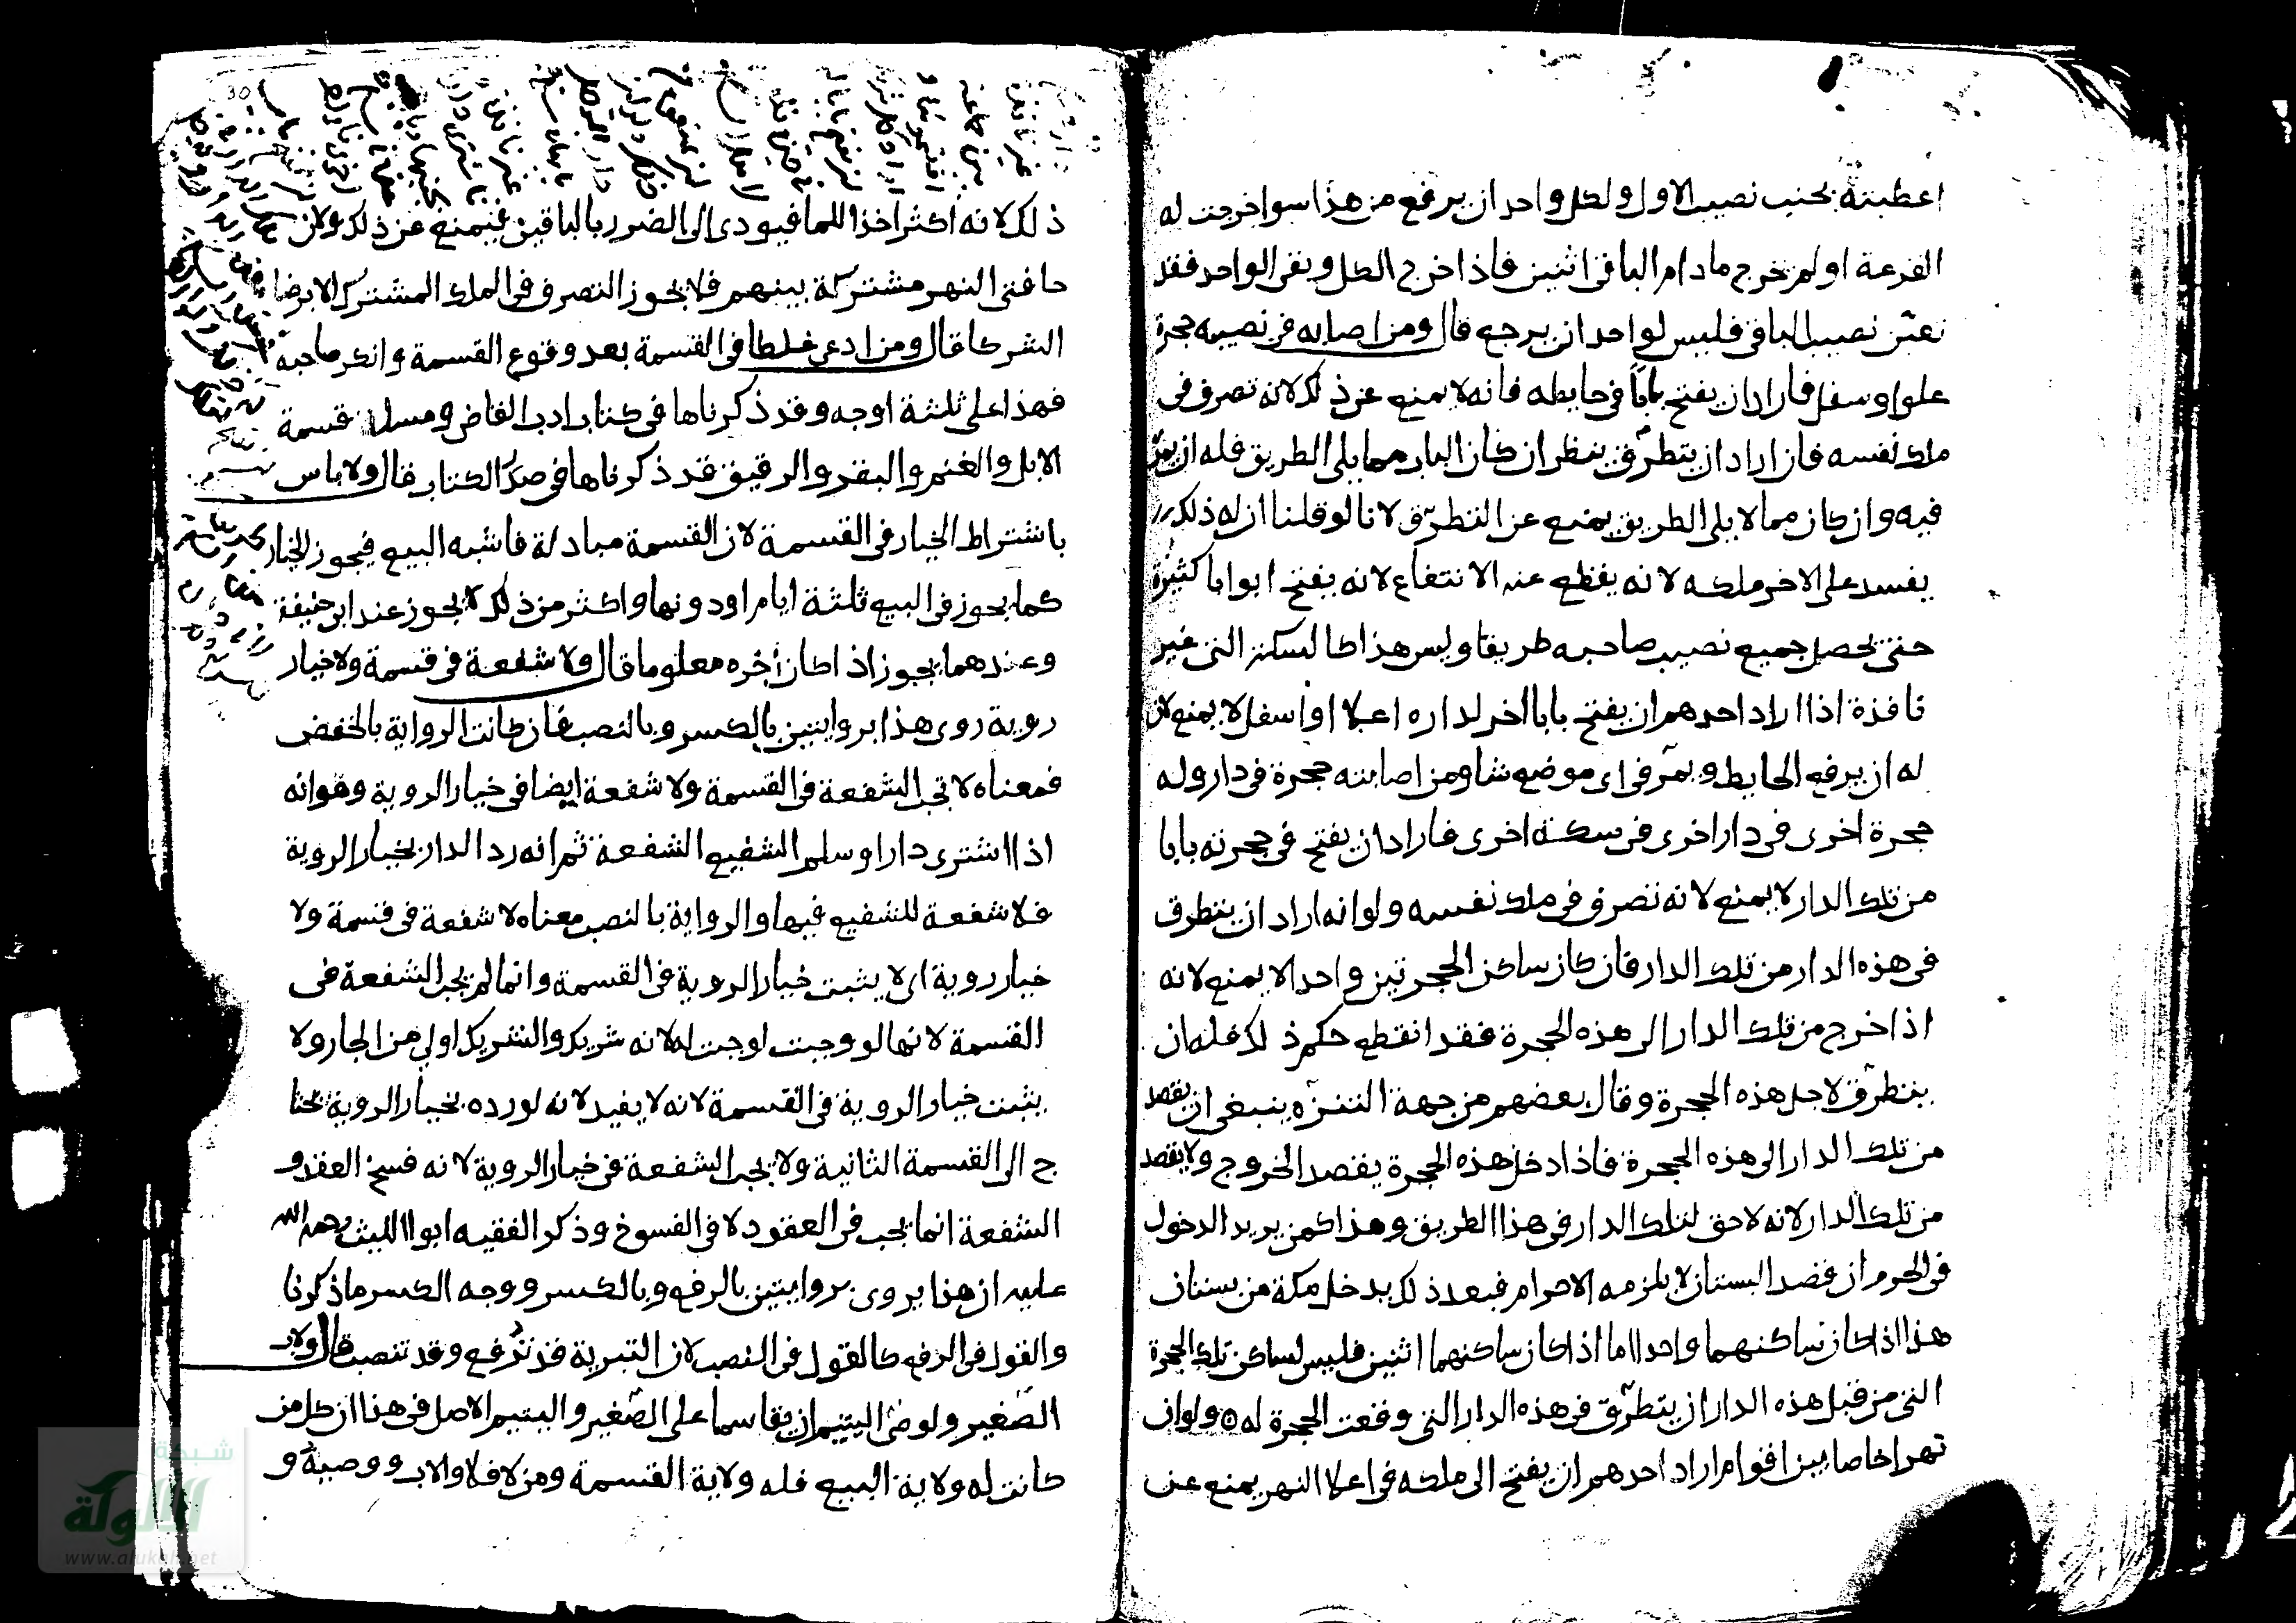 اعطيته بجنب نصيب الاول ولكل واحد ان يرفع من هذا سوا خرجت له
القرعة او لم تخرج ما دام الباقى اثنين فاذا خرج الكل وبقى الواحد فقد
تعين نصيب الباقى فليس لواحد ان يرجع قال ومن اصابه فى نصيبه حجرة
علو او سفل فاراد ان يفتح بابا فى حايطه فانه لا يمنع عن ذلك لانه تصرف فى
ملك نفسه فان اراد ان يتطرق ينظر ان كان الباب مما يلى الطريق فله ان يمر
فيه وان كان مما لا يلى الطريق يمنع عن التطرق لانا لو قلنا ان له ذلك
يفسد على الاخر ملكه لانه يقطع عنه الانتفاع لانه يفتح ابوابا كثيرة
حتى يحصل جميع نصيب صاحبه طريقا وليس هذا كالسكة التى غير
نافذة اذا اراد احدهم ان يفتح بابا اخر لداره اعلا او اسفل لا يمنع لان
له ان يرفع الحايط ويمر فى اى موضع شا ومن اصابته حجرة فى دار وله
حجرة اخرى فى دار اخرى فى سكة اخرى فاراد ان يفتح فى حجرته بابا
من تلك الدار لا يمنع لانه تصرف فى ملك نفسه ولو انه اراد ان يتطرق
فى هذه الدار من تلك الدار فان كان ساكن الحجرتين واحدا لا يمنع لانه
اذا خرج من تلك الدار الى هذه الحجرة فقد انقطع حكم ذلك فله ان
يتطرق لاجل هذه الحجرة وقال بعضهم من جهة التنزه ينبغى ان يقصد
من تلك الدار الى هذه الحجرة فاذا دخل هذه الحجرة يقصد الخروج ولا يقصد
من تلك الدار لانه لا حق لتلك الدار فى هذا الطريق وهذا كمن يريد الدخول
فى الحرم ان قصد البستان لا يلزمه الاحرام فبعد ذلك يدخل مكة من بستان
هذا اذا كان ساكنهما واحدا اما اذا كان ساكنهما اثنين فليس لساكن تلك الحجرة
التى من قبل هذه الدار ان يتطرق فى هذه الدار التى وقعت الحجرة له ۞ ولو ان
نهرا خاصا بين اقوام اراد احدهم ان يفتح الى ملكه فى اعلا النهر يمنع عن
30
ذلك لانه اكثر اخذا للما فيودى الى الضرر بالباقين فيمنع عن ذلك ولان
حافتى النهر مشتركة بينهم فلا يجوز التصرف فى الملك المشترك الا برضا
الشركا قال ومن ادعى غلطا فى القسمة بعد وقوع القسمة وانكر صاحبه
فهذا على ثلثة اوجه وقد ذكرناها فى كتاب ادب القاضى ومسلة قسمة
الابل والغنم والبقر والرقيق قد ذكرناها فى صدر الكتاب قال ولا باس
باشتراط الخيار فى القسمة لان القسمة مبادلة فاشبه البيع فيجوز الخيار
كما يجوز فى البيع ثلثة ايام او دونها واكثر من ذلك لا يجوز عند ابى حنيفة
وعندهما يجوز اذا كان اخره معلوما قال ولا شفعة فى قسمة ولا خيار
روية روى هذا بروايتين بالكسر وبالنصب فان كانت الرواية بالخفض
فمعناه لا تجب الشفعة فى القسمة ولا شفعة ايضا فى خيار الروية وهو انه
اذا اشترى دارا وسلم الشفيع الشفعة ثم انه رد الدار بخيار الروية
فلا شفعة للشفيع فيها والرواية بالنصب معناه لا شفعة فى قسمة ولا
خيار روية اى لا يثبت خيار الروية فى القسمة وانما لم يجب الشفعة فى
القسمة لانها لو وجبت لوجبت له لانه شريك والشريك اولى من الجار ولا
يثبت خيار الروية فى القسمة لانه لا يفيد لانه لو رده بخيار الروية يحتا
ج الى القسمة الثانية ولا يجب الشفعة فى خيار الروية لانه فسخ العقد و
الشفعة انما يجب فى العقود لا فى الفسوخ وذكر الفقيه ابو الليث رحمة الله
عليه ان هذا يروى بروايتين بالرفع وبالكسر ووجه الكسر ما ذكرنا
والقول فى الرفع كالقول فى النصب لان التبرية قد ترفع وقد تنصب قال ولاب
الصغير ولوصى اليتيم ان يقاسما على الصغير واليتيم الاصل فى هذا ان كل من
كانت له ولاية البيع فله ولاية القسمة ومن لا فلا والاب ووصيه و
شبكة
الألوكة
www.alukah.net